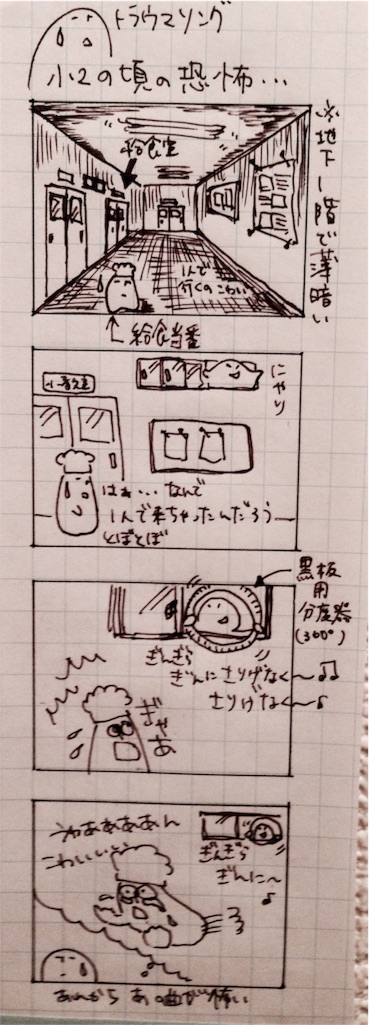 トラウマソング
小2の頃の恐怖…
給食室
※地下1階で薄暗い
1人で
行くのこわい
給食当番
にゃり
はぁ…なんで
1人で来ちゃったんだろう
とぼとぼ
黒板
用
分度器
(360°)
ぎんぎら
ぎんにさりげなく〜♫
さりげなく〜♪
ぎゃあ
うわああああん
こわいいい
ぎんぎら
ぎんに〜
♪
あれから あの曲が怖い